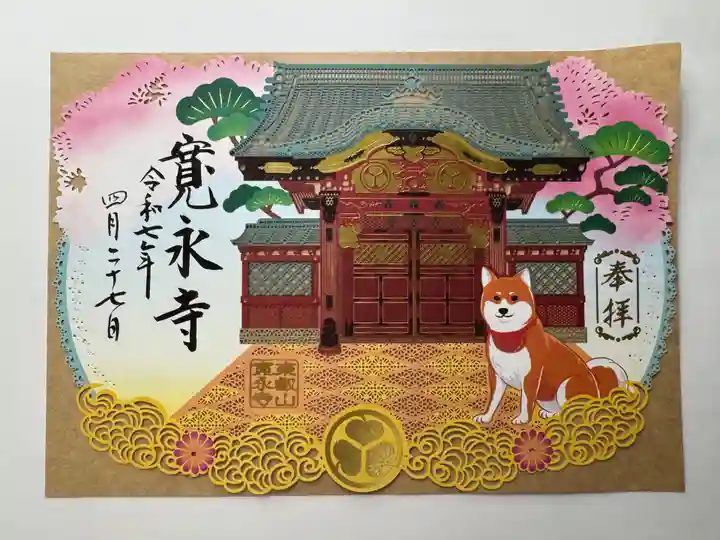 奉拝
寛永寺
令和七年
四月二十七日
東叡山
寛永寺